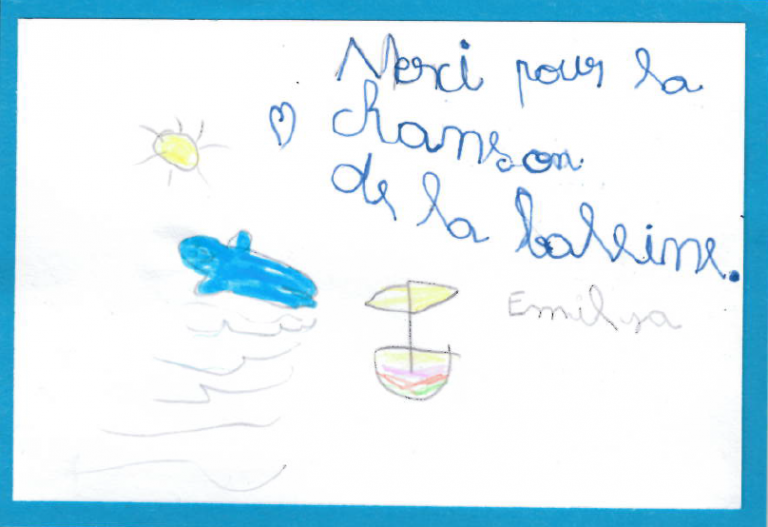 Merci pour la
chanson
de la baleine.
Emilya